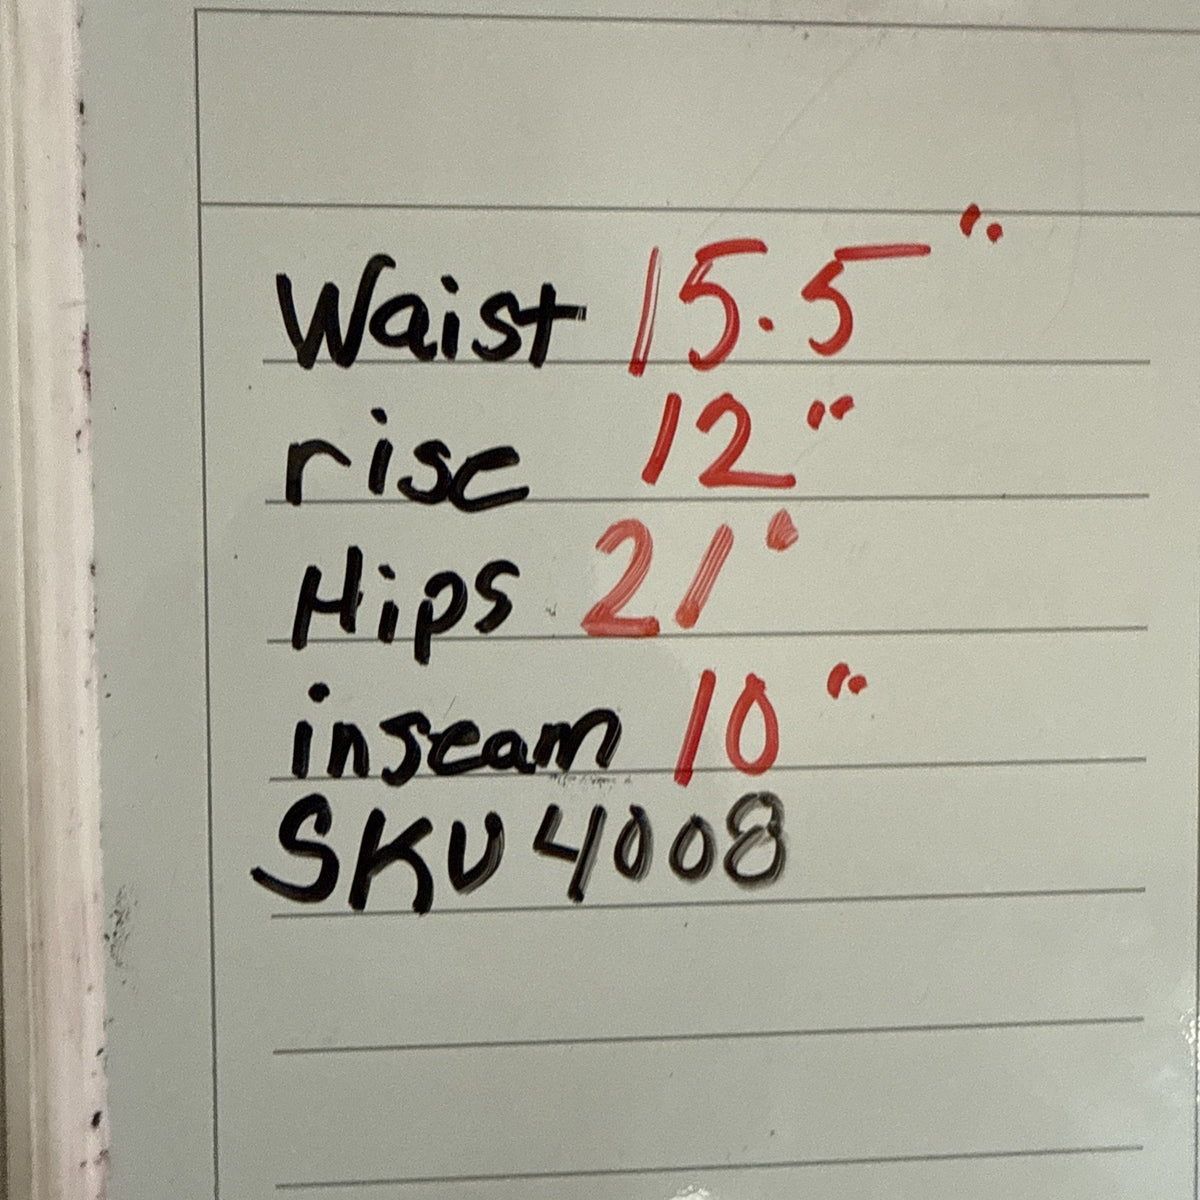 Waist 15.5"
rise 12"
Hips 21"
inseam 10"
SKU 4008